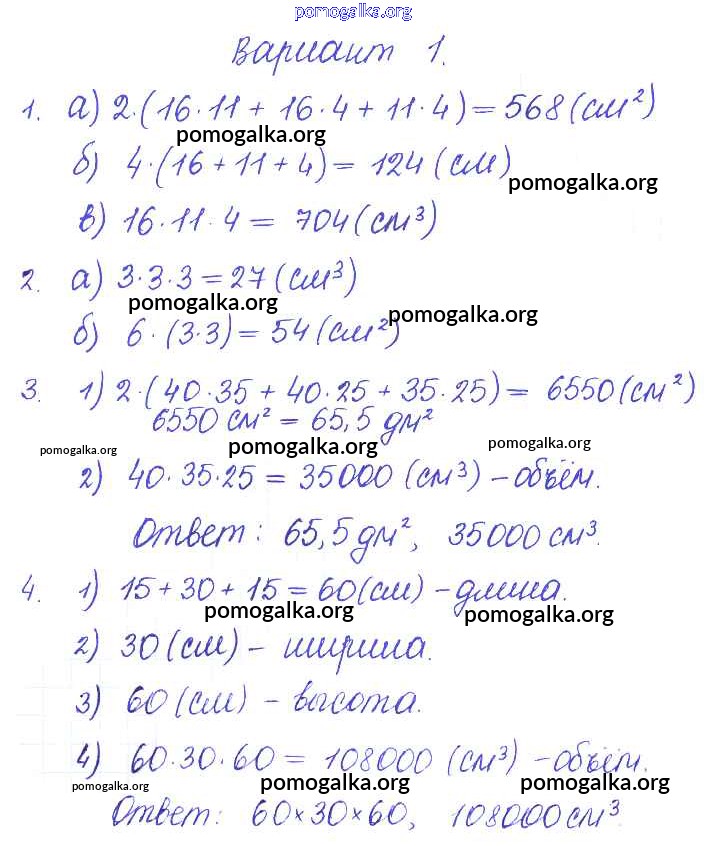 pomogalka.org
Вариант 1.
1. а) 2·(16·11 + 16·4 + 11·4) = 568 (см²)
pomogalka.org
б) 4·(16 + 11 + 4) = 124 (см)
pomogalka.org
в) 16·11·4 = 704 (см³)
2. а) 3·3·3 = 27 (см³)
pomogalka.org
pomogalka.org
б) 6·(3·3) = 54 (см²)
3. 1) 2·(40·35 + 40·25 + 35·25) = 6550 (см²)
6550 см² = 65,5 дм²
pomogalka.org
pomogalka.org
pomogalka.org
2) 40·35·25 = 35000 (см³) – объём.
Ответ: 65,5 дм², 35000 см³.
4. 1) 15 + 30 + 15 = 60 (см) – длина.
pomogalka.org
pomogalka.org
2) 30 (см) – ширина.
3) 60 (см) – высота.
4) 60·30·60 = 108000 (см³) – объём.
pomogalka.org
pomogalka.org
pomogalka.org
Ответ: 60×30×60, 108000 см³